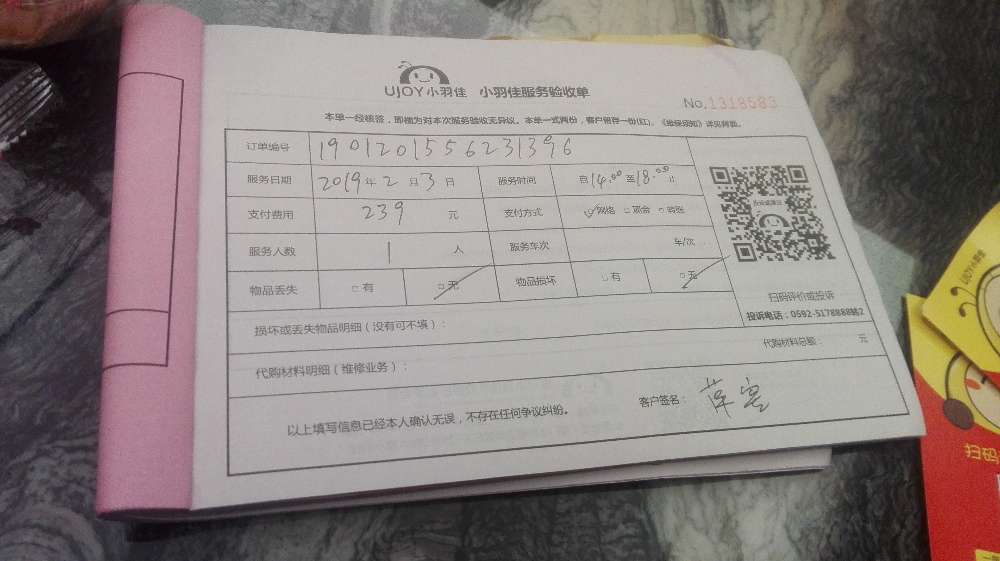 UJOY小羽佳 小羽佳服务验收单
No.1318583
本单一经核签，即视为对本次服务验收无异议。本单一式两份，客户留存一份(红)。《维保须知》详见背面。
订单编号 1901201556231396
服务日期 2019年2月3日 服务时间 自14:00至18:00止
支付费用 239 元 支付方式 ☑网络 □现金 □转账
服务人数 1 人 服务车次 车/次
物品丢失 □有 ☑无 物品损坏 □有 ☑无
扫码评价或投诉
投诉电话：0592-5178888转2
损坏或丢失物品明细（没有可不填）：
代购材料明细（维修业务）： 代购材料总额： 元
以上填写信息已经本人确认无误，不存在任何争议纠纷。 客户签名：
UJOY小羽佳
扫码